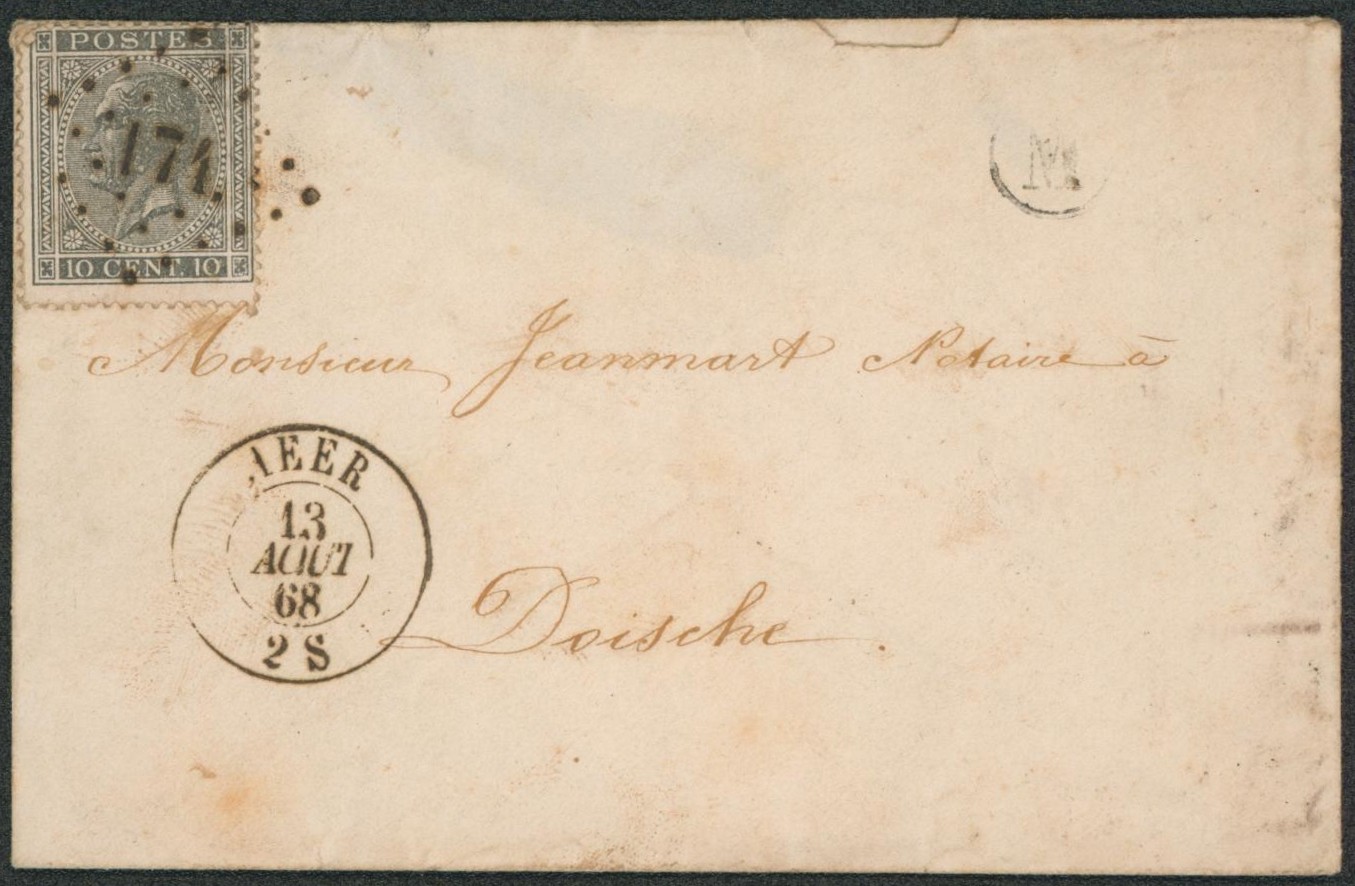 POSTES
174
10 CENT. 10
M
Monsieur Jeanmart Notaire à
EER
13
AOUT
68
2 S
Doische.